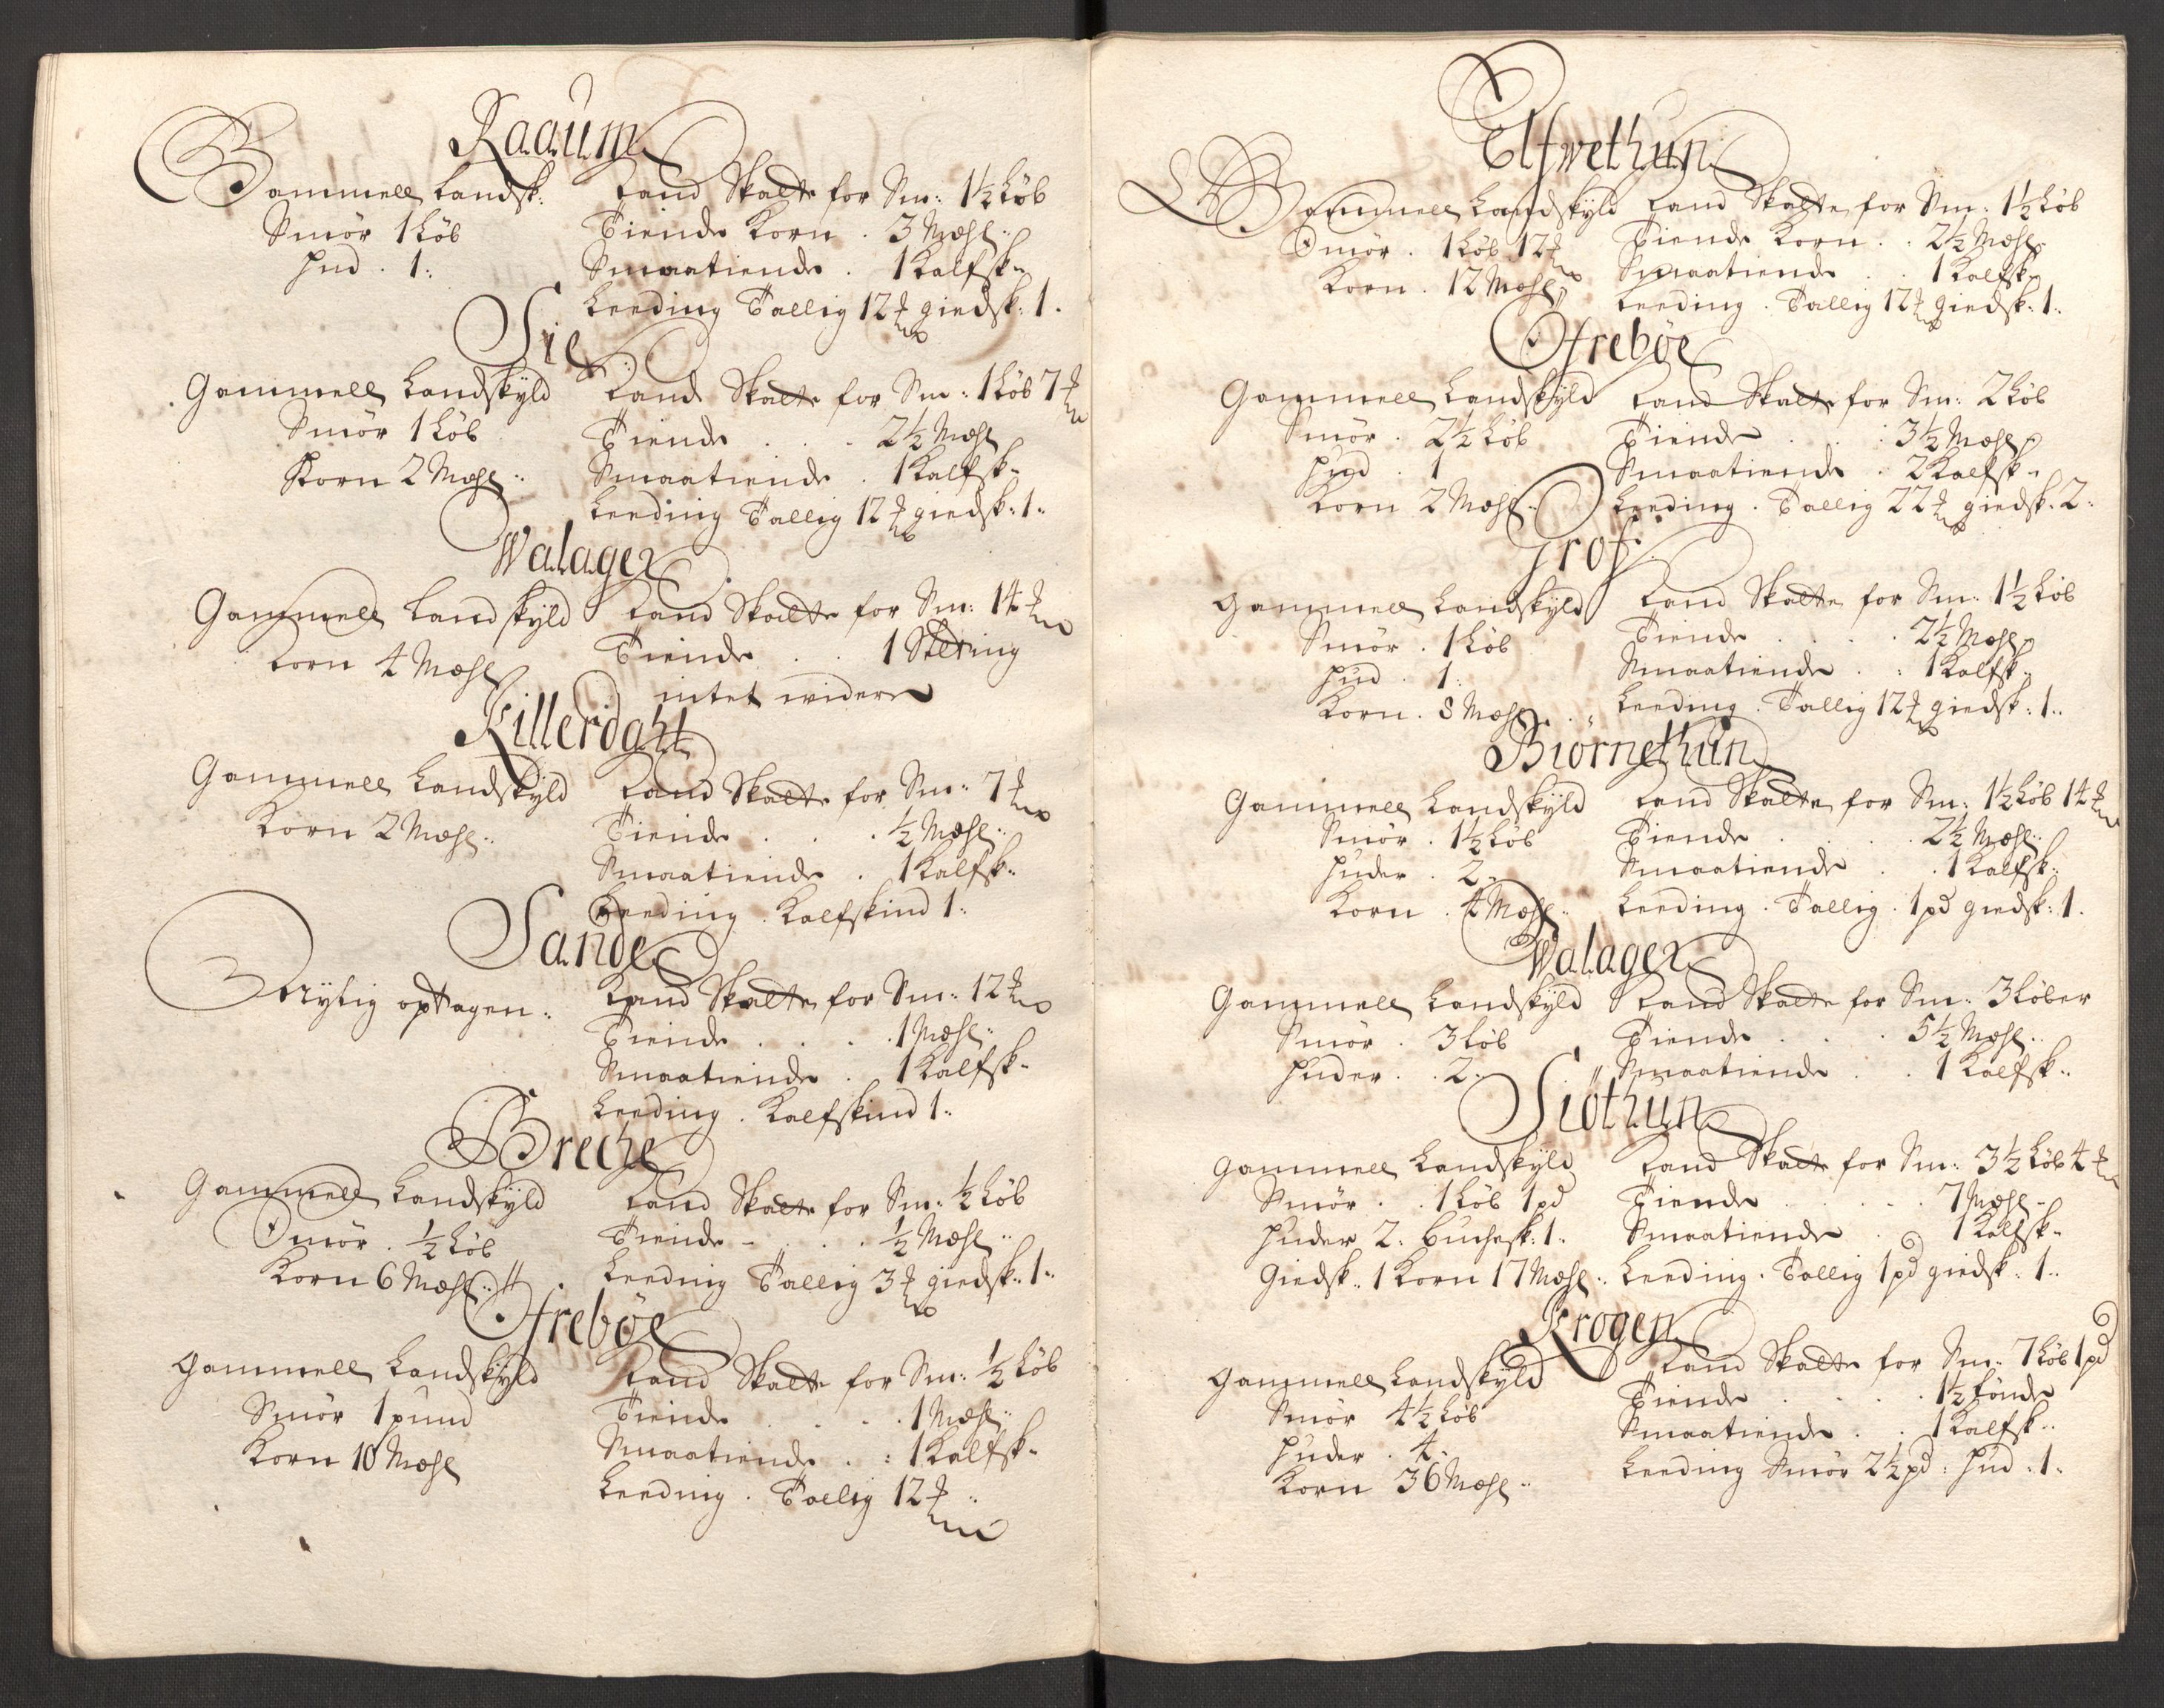 Raaum
Gammell Landsk:
Smör 1 Löb
Hud . 1:
Land Skatte for Sm: 1½ Löb
Tiende Korn . 3 Mæhl:
Smaatiende . 1 Kalfsk-
Leeding Tallig 12 ℔ giedsk: 1.
Sie
Gammell Landskÿld
Smör 1 Löb
Korn 2 Mæhl:
Land Skatte for Sm: 1 Löb 7 ℔
Tiende . . . 2½ Mæhl
Smaatiende . 1 Kalfsk-
Leeding Tallig 12 ℔ giedsk: 1:
Walager
Gammell Landskÿld
Korn 4 Mæhl
Land Skatte for Sm: 14 ℔
Tiende . . 1 Setting
intet widere
Killerdahl
Gammell Landskÿld
Korn 2 Mæhl:
Land Skatte for Sm: 7 ℔
Tiende . . . ½ Mæhl:
Smaatiende . 1 Kalfsk:
Leeding . Kalfskind 1:
Sande
Nÿlig optagen:
Land Skatte for Sm: 12 ℔
Tiende . . . 1 Mæhl:
Smaatiende . 1 Kalfsk-
Leeding . Kalfskind 1:
Breche
Gammell Landskÿld
Smör . ½ Löb
Korn 6 Mæhl:
Land Skatte for Sm: ½ Löb
Tiende - . . . ½ Mæhl:
Leeding Tallig 3 ℔ giedsk: 1:
Frebøe
Gammell Landskÿld
Smör 1 pund
Korn 10 Mæhl
Land Skatte for Sm: ½ Löb
Tiende . . . 1 Mæhl:
Smaatiende . : 1 Kalfsk-
Leeding . Tallig 12 ℔ :
Elfwethun
Gammell Landskÿld
Smör . 1 Löb 12 ℔
Korn . 12 Mæhl:
Land Skatte for Sm: 1½ Löb
Tiende Korn . . 2½ Mæhl
Smaatiende . . 1 Kalfsk-
Leeding . Tallig 12 ℔ giedsk: 1:
Frebøe
Gammell Landskÿld
Smör . 2½ Löb
Hud . 1
Korn 2 Mæhl:
Land Skatte for Sm: 2 Löb
Tiende . . . 3½ Mæhl
Smaatiende . 2 Kalfsk-
Leeding . Tallig 22 ℔ giedsk. 2:
Grof
Gammell Landskÿld
Smör . 1 Löb
Hud . 1:
Korn . 8 Mæhl
Land Skatte for Sm: 1½ Löb
Tiende . . . . 2½ Mæhl
Smaatiende . : 1 Kalfsk-
Leeding . Tallig 12 ℔ giedsk: 1:
Biornethun
Gammell Landskÿld
Smör . 1½ Löb
Huder . 2:
Korn . 4 Mæhl:
Land Skatte for Sm: 1½ Löb 14 ℔
Tiende . . . . 2½ Mæhl:
Smaatiende . . 1 Kalfsk:
Leeding . Tallig . 1 pd giedsk: 1.
Walager
Gammell Landskÿld
Smör . 3 Löb
Huder . . 2:
Land Skatte for Sm: 3 Löber
Tiende . . . 5½ Mæhl:
Smaatiende . . 1 Kalfsk:
Siöthun
Gammell Landskÿld
Smör . . 1 Löb 1 pd
Huder 2: Buchesk: 1:
Giedsk: 1 Korn 17 Mæhl:
Land Skatte for Sm: 3½ Löb 4 ℔
Tiende . . . . 7 Mæhl-
Smaatiende . 1 Kalfsk-
Leeding . Tallig 1 pd giedsk: 1:
Krogen
Gammell Landskÿld
Smör 4½ Löb
Huder . 4:
Korn 36 Mæhl:
Land Skatte for Sm: 7 Löb 1 pd
Tiende . . . 1½ tönde
Smaatiende . . 1 Kalfsk:
Leeding Smör 2½ pd: Hud : 1: